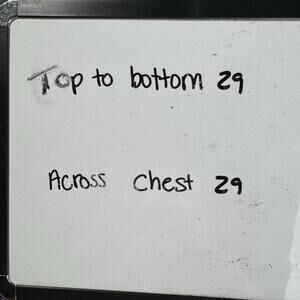 Top to bottom 29
Across Chest 29